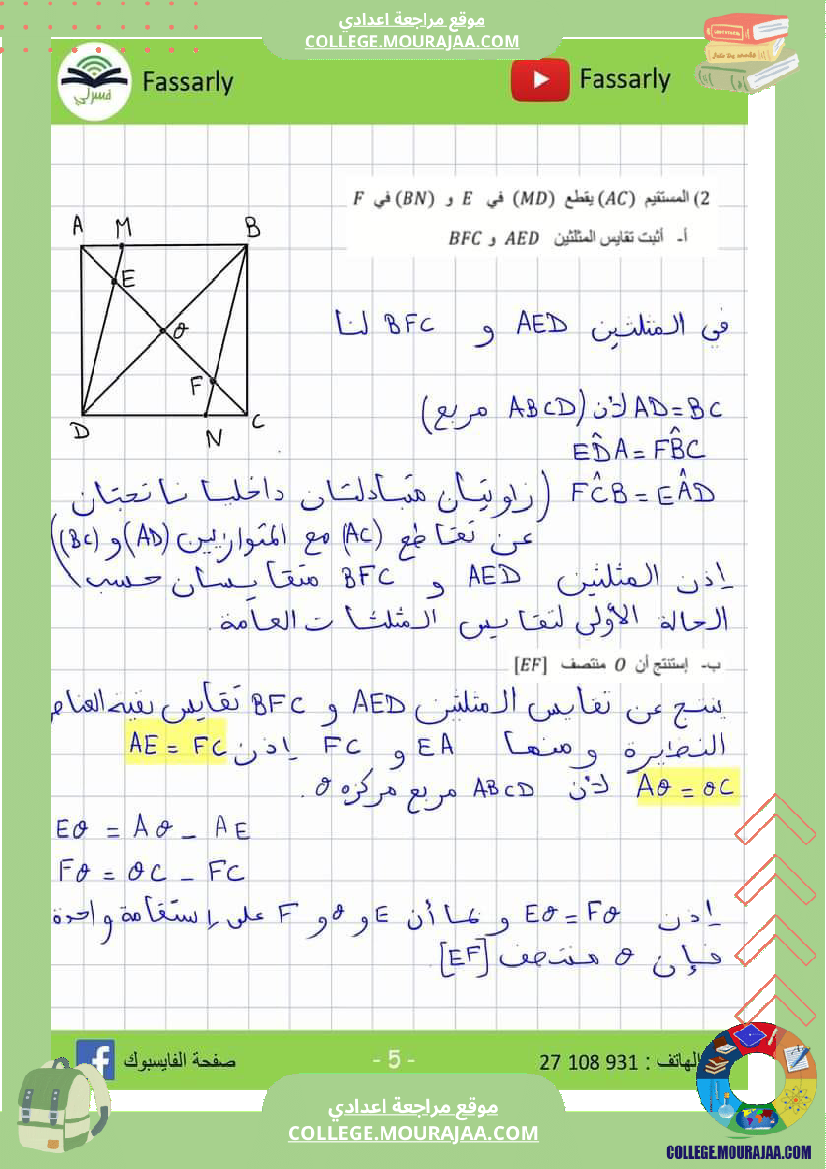 موقع مراجعة اعدادي
COLLEGE.MOURAJAA.COM
فسرلي
Fassarly
Fassarly
2) المستقيم (AC) يقطع (MD) في E و (BN) في F
أ- أثبت تقايس المثلثين AED و BFC
A M B
E
O
F
D N C
في المثلثين AED و BFC لنا
AD=BC لأن (ABCD مربع)
ED̂A = FB̂C
FĈB = EÂD (زاويتان متبادلتان داخليا ناتجتان
عن تقاطع (AC) مع المتوازيين (AD) و (BC))
إذن المثلثين AED و BFC متقايسان حسب
الحالة الأولى لتقايس المثلثات العامة.
ب- إستنتج أن O منتصف [EF]
ينتج عن تقايس المثلثين AED و BFC تقايس بقية العناصر
النظيرة ومنها EA و FC إذن AE = FC
AO = OC لأن ABCD مربع مركزه O.
EO = AO - AE
FO = OC - FC
إذن EO = FO و بما أن E و O و F على إستقامة واحدة
فإن O منتصف [EF].
صفحة الفايسبوك
- 5 -
الهاتف : 27 108 931
موقع مراجعة اعدادي
COLLEGE.MOURAJAA.COM
COLLEGE.MOURAJAA.COM